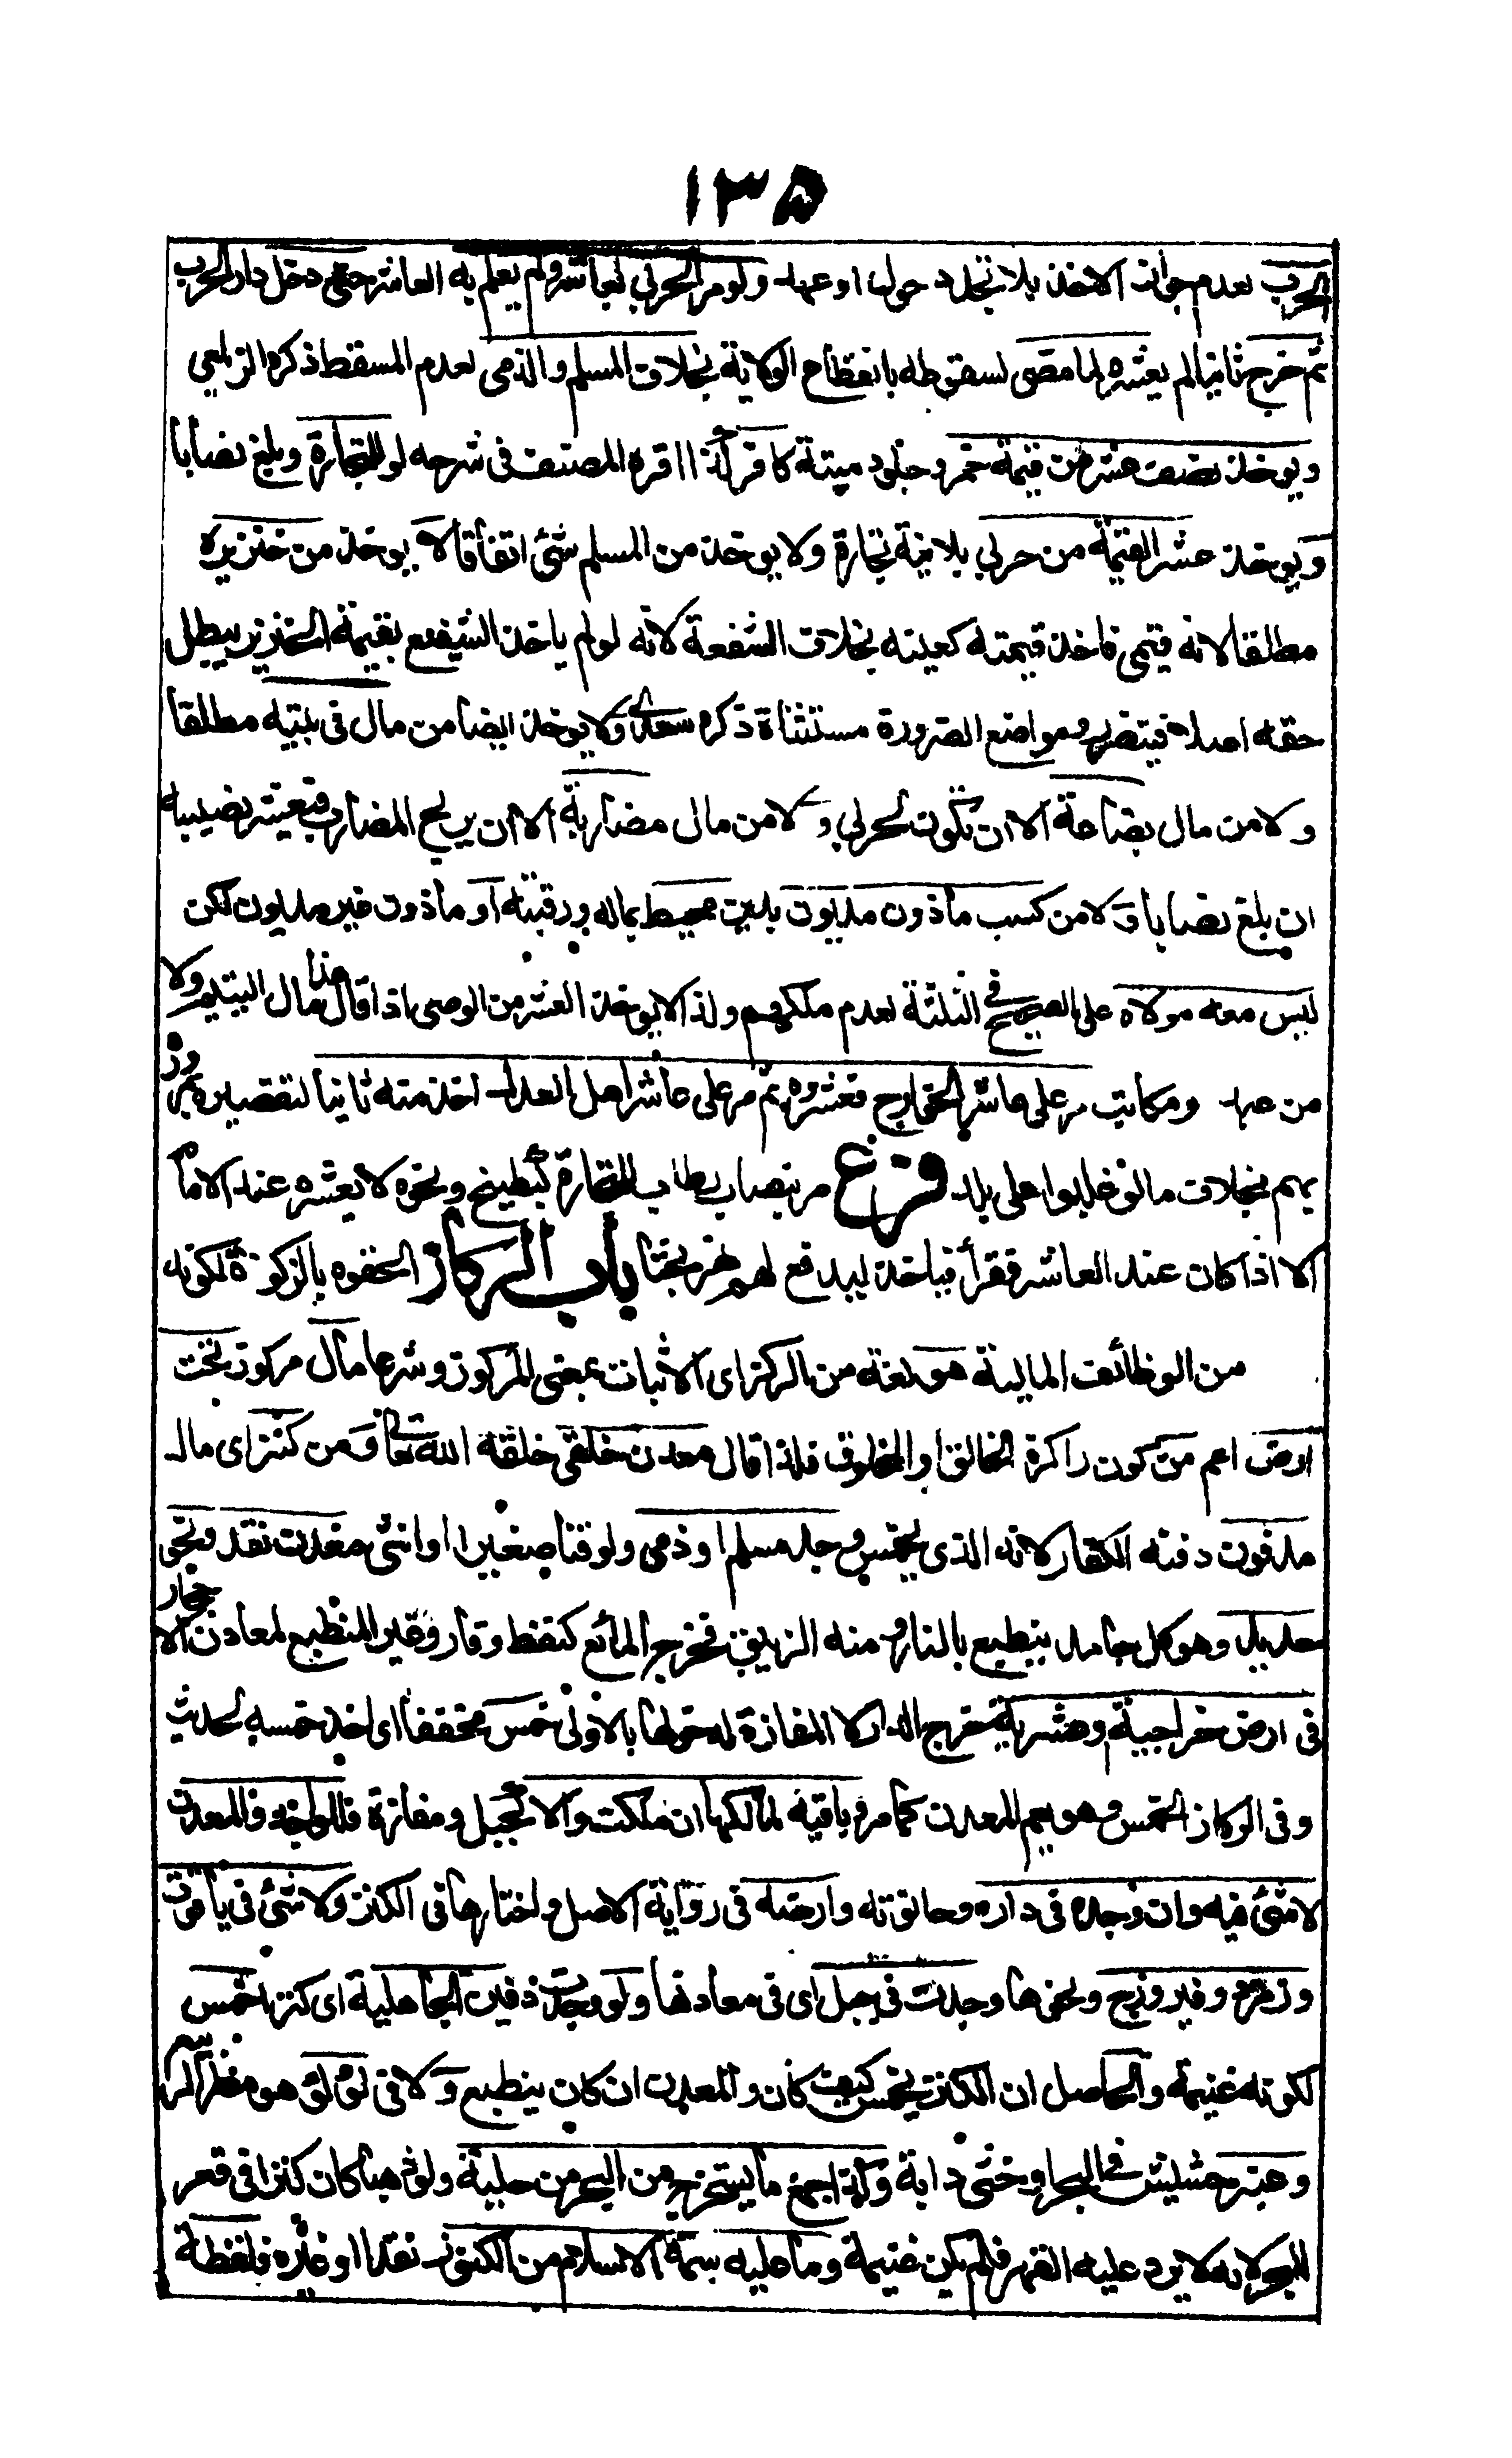 ١٣٥
الحرب لعدم جواز الاخذ بلا تجدد حول او عهد ولو مر الحربي بعاشر ولم يعلم به العاشر حتى دخل دار الحرب
ثم خرج ثانيا لم يعشره لما مضى لسقوطه بانقطاع الولاية بخلاف المسلم والذمي لعدم المسقط ذكره الزيلعي
ويوخذ نصف عشر من قيمة خمر وجلود ميتة كافر كذا اقره المصنف في شرحه لو للتجارة وبلغ نصابا
ويوخذ عشر القيمة من حربي بلا نية تجارة ولا يوخذ من المسلم شئ اتفاقا لا يوخذ من خنزيره
مطلقا لانه قيمي فاخذ قيمته كعينه بخلاف الشفعة لانه لو لم ياخذ الشفيع بقيمة الخنزير يبطل
حقه اصلا فيتضرر ومواضع الضرورة مستثناة ذكره سعدي ولا يوخذ ايضا من مال في بيته مطلقا
ولا من مال بضاعة الا ان تكون لحربي ولا من مال مضاربة الا ان يربح المضارب فيعشر نصيبه
ان بلغ نصابا ولا من كسب ماذون مديون بدين محيط بماله ورقبته او ماذون غير مديون لكن
ليس معه مولاه على الصحيح في الثلثة لعدم ملكهم ولذا لا يوخذ العشر من الوصي اذا قال هذا مال اليتيم ولا
من عبد ومكاتب مر على عاشر الخوارج فعشروه ثم مر على عاشر اهل العدل اخذ منه ثانيا لتقصيره بمروره
بهم بخلاف ما لو غلبوا على بلد فرع مر بنصاب رطاب للتجارة كبطيخ ونحوه لا يعشره عند الامام
الا اذا كان عند العاشر فقراء فياخذ ليدفع لهم نهر بحثا باب الركاز الحقوه بالزكوة لكونه
من الوظائف المالية هو لغة من الركز اي الاثبات بمعنى المركوز وشرعا مال مركوز تحت
ارض اعم من كون راكزه الخالق او المخلوق فلذا قال معدن خلقي خلقه الله تعالى ومن كنز اي مال
مدفون دفنه الكفار لانه الذي يخمس وجد مسلم او ذمي ولو قنا صغيرا او انثى معدن نقد ونحو
حديد وهو كل جامد ينطبع بالنار ومنه الزيبق فخرج المائع كنفط وقار وغير المنطبع لمعادن الاحجار
في ارض خراجية وعشرية خرج الدار لا المفازة لدخولها بالاولى خمس مخففا اي اخذ خمسه لحديث
وفي الركاز الخمس وهو يعم المعدن كما مر وباقيه لمالكها ان ملكت والا كجبل ومفازة فللواجد والمعدن
لا شئ فيه وان وجده في داره وحانوته وارضه في رواية الاصل واختارها في الكنز ولا شئ في ياقوت
وزمرد وفيروزج ونحوها وجدت في جبل اي في معادنها ولو وجدت دفين الجاهلية اي كنزا خمس
لكونه غنيمة والحاصل ان الكنز يخمس كيف كان والمعدن ان كان ينطبع ولا في لؤلؤ هو مطر الربيع
وعنبر حشيش في البحر او خثى دابة وكذا جميع ما يستخرج من البحر من حلية ولو ذهبا كان كنزا في قعر
البحر لانه لا يرد عليه القهر فلم يكن غنيمة وما عليه سمة الاسلام من الكنوز نقدا او غيره فلقطة